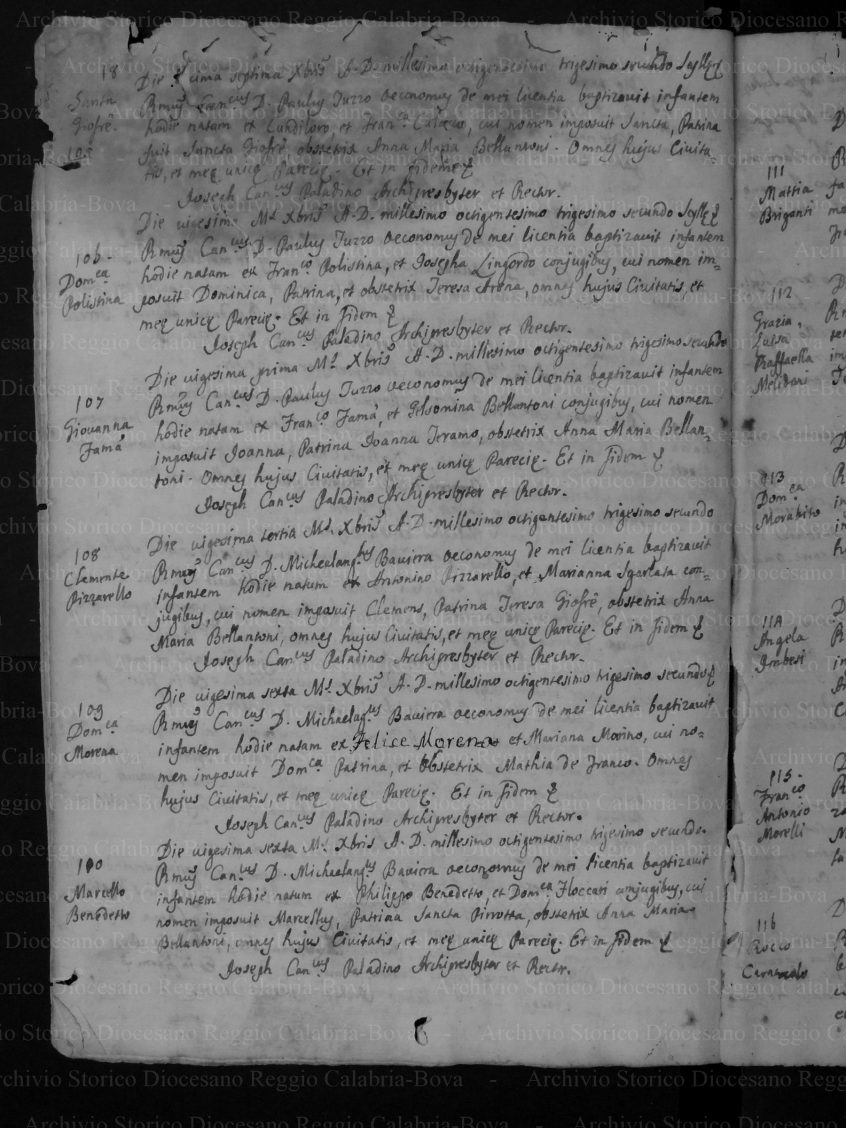 18
Santa
Giofrè
Die decima septima Xbris A. D. millesimo octigentesimo trigesimo secundo Scyllę
Rmus Can.cus D. Paulus Turro oeconomus de mei licentia baptizavit infantem
hodie natam ex Candiloro, et Fran.ca, cui nomen imposuit Sancta, Patrina
fuit Sancta Giofrè obstetrix Anna Maria Bellantoni. Omnes hujus Civita-
tis, et meę unicę Parecię. Et in fidem
Joseph Can.cus Paladino Archipresbyter et Rector.
106.
Dom.ca
Polistina
Die vigesima M.s Xbris A. D. millesimo octigentesimo trigesimo secundo Scyllę
Rmus Can.cus D. Paulus Turro oeconomus de mei licentia baptizavit infantem
hodie natam ex Fran.co Polistina, et Josepha Lingordo conjugibus, cui nomen im-
posuit Dominica, Patrina, et obstetrix Teresa Arena, omnes hujus Civitatis, et
meę unicę Parecię. Et in fidem
Joseph Can.cus Paladino Archipresbyter et Rector.
107
Giovanna
Famà
Die vigesima prima M.s Xbris A. D. millesimo octigentesimo trigesimo secundo
Rmus Can.cus D. Paulus Turro oeconomus de mei licentia baptizavit infantem
hodie natam ex Fran.co Famà, et Gelsomina Bellantoni conjugibus, cui nomen
imposuit Joanna, Patrina Joanna Teramo, obstetrix Anna Maria Bellan-
toni. Omnes hujus Civitatis, et meę unicę Parecię. Et in fidem
Joseph Can.cus Paladino Archipresbyter et Rector.
108
Clemente
Pizzarello
Die vigesima tertia M.s Xbris A. D. millesimo octigentesimo trigesimo secundo
Rmus Can.cus D. Michealang.lus Baviera oeconomus de mei licentia baptizavit
infantem hodie natum ex Antonino Pizzarello, et Marianna Sgarlata con-
jugibus, cui nomen imposuit Clemens, Patrina Teresa Giofrè, obstetrix Anna
Maria Bellantoni, omnes hujus Civitatis, et meę unicę Parecię. Et in fidem
Joseph Can.cus Paladino Archipresbyter et Rector.
109
Dom.ca
Morena
Die vigesima sexta M.s Xbris A. D. millesimo octigentesimo trigesimo secundo
Rmus Can.cus D. Michaelag.lus Baviera oeconomus de mei licentia baptizavit
infantem hodie natam ex Felice Morena et Mariana Morino, cui no-
men imposuit Dom.ca Patrina, et obstetrix Mathia de Franco. Omnes
hujus Civitatis, et meę unicę Parecię. Et in fidem
Joseph Can.cus Paladino Archipresbyter et Rector.
110
Marcello
Benedetto
Die vigesima sexta M.s Xbris A. D. millesimo octigentesimo trigesimo secundo.
Rmus Can.cus D. Michaelang.lus Baviera oeconomus de mei licentia baptizavit
infantem hodie natum ex Philippo Benedetto, et Dom.ca Floccari conjugibus, cui
nomen imposuit Marcellus, Patrina Sancta Pirrotta, obstetrix Anna Maria
Bellantoni, omnes hujus Civitatis, et meę unicę Parecię. Et in fidem
Joseph Can.cus Paladino Archipresbyter et Rector.
111
Mattia
Briganti
112
Grazia,
Luisa
Raffaella
Melidoni
113
Dom.ca
Morabito
114
Angela
Imbesi
115.
Fran.co
Antonio
Morelli
116
Rocco
Archivio Storico Diocesano Reggio Calabria-Bova